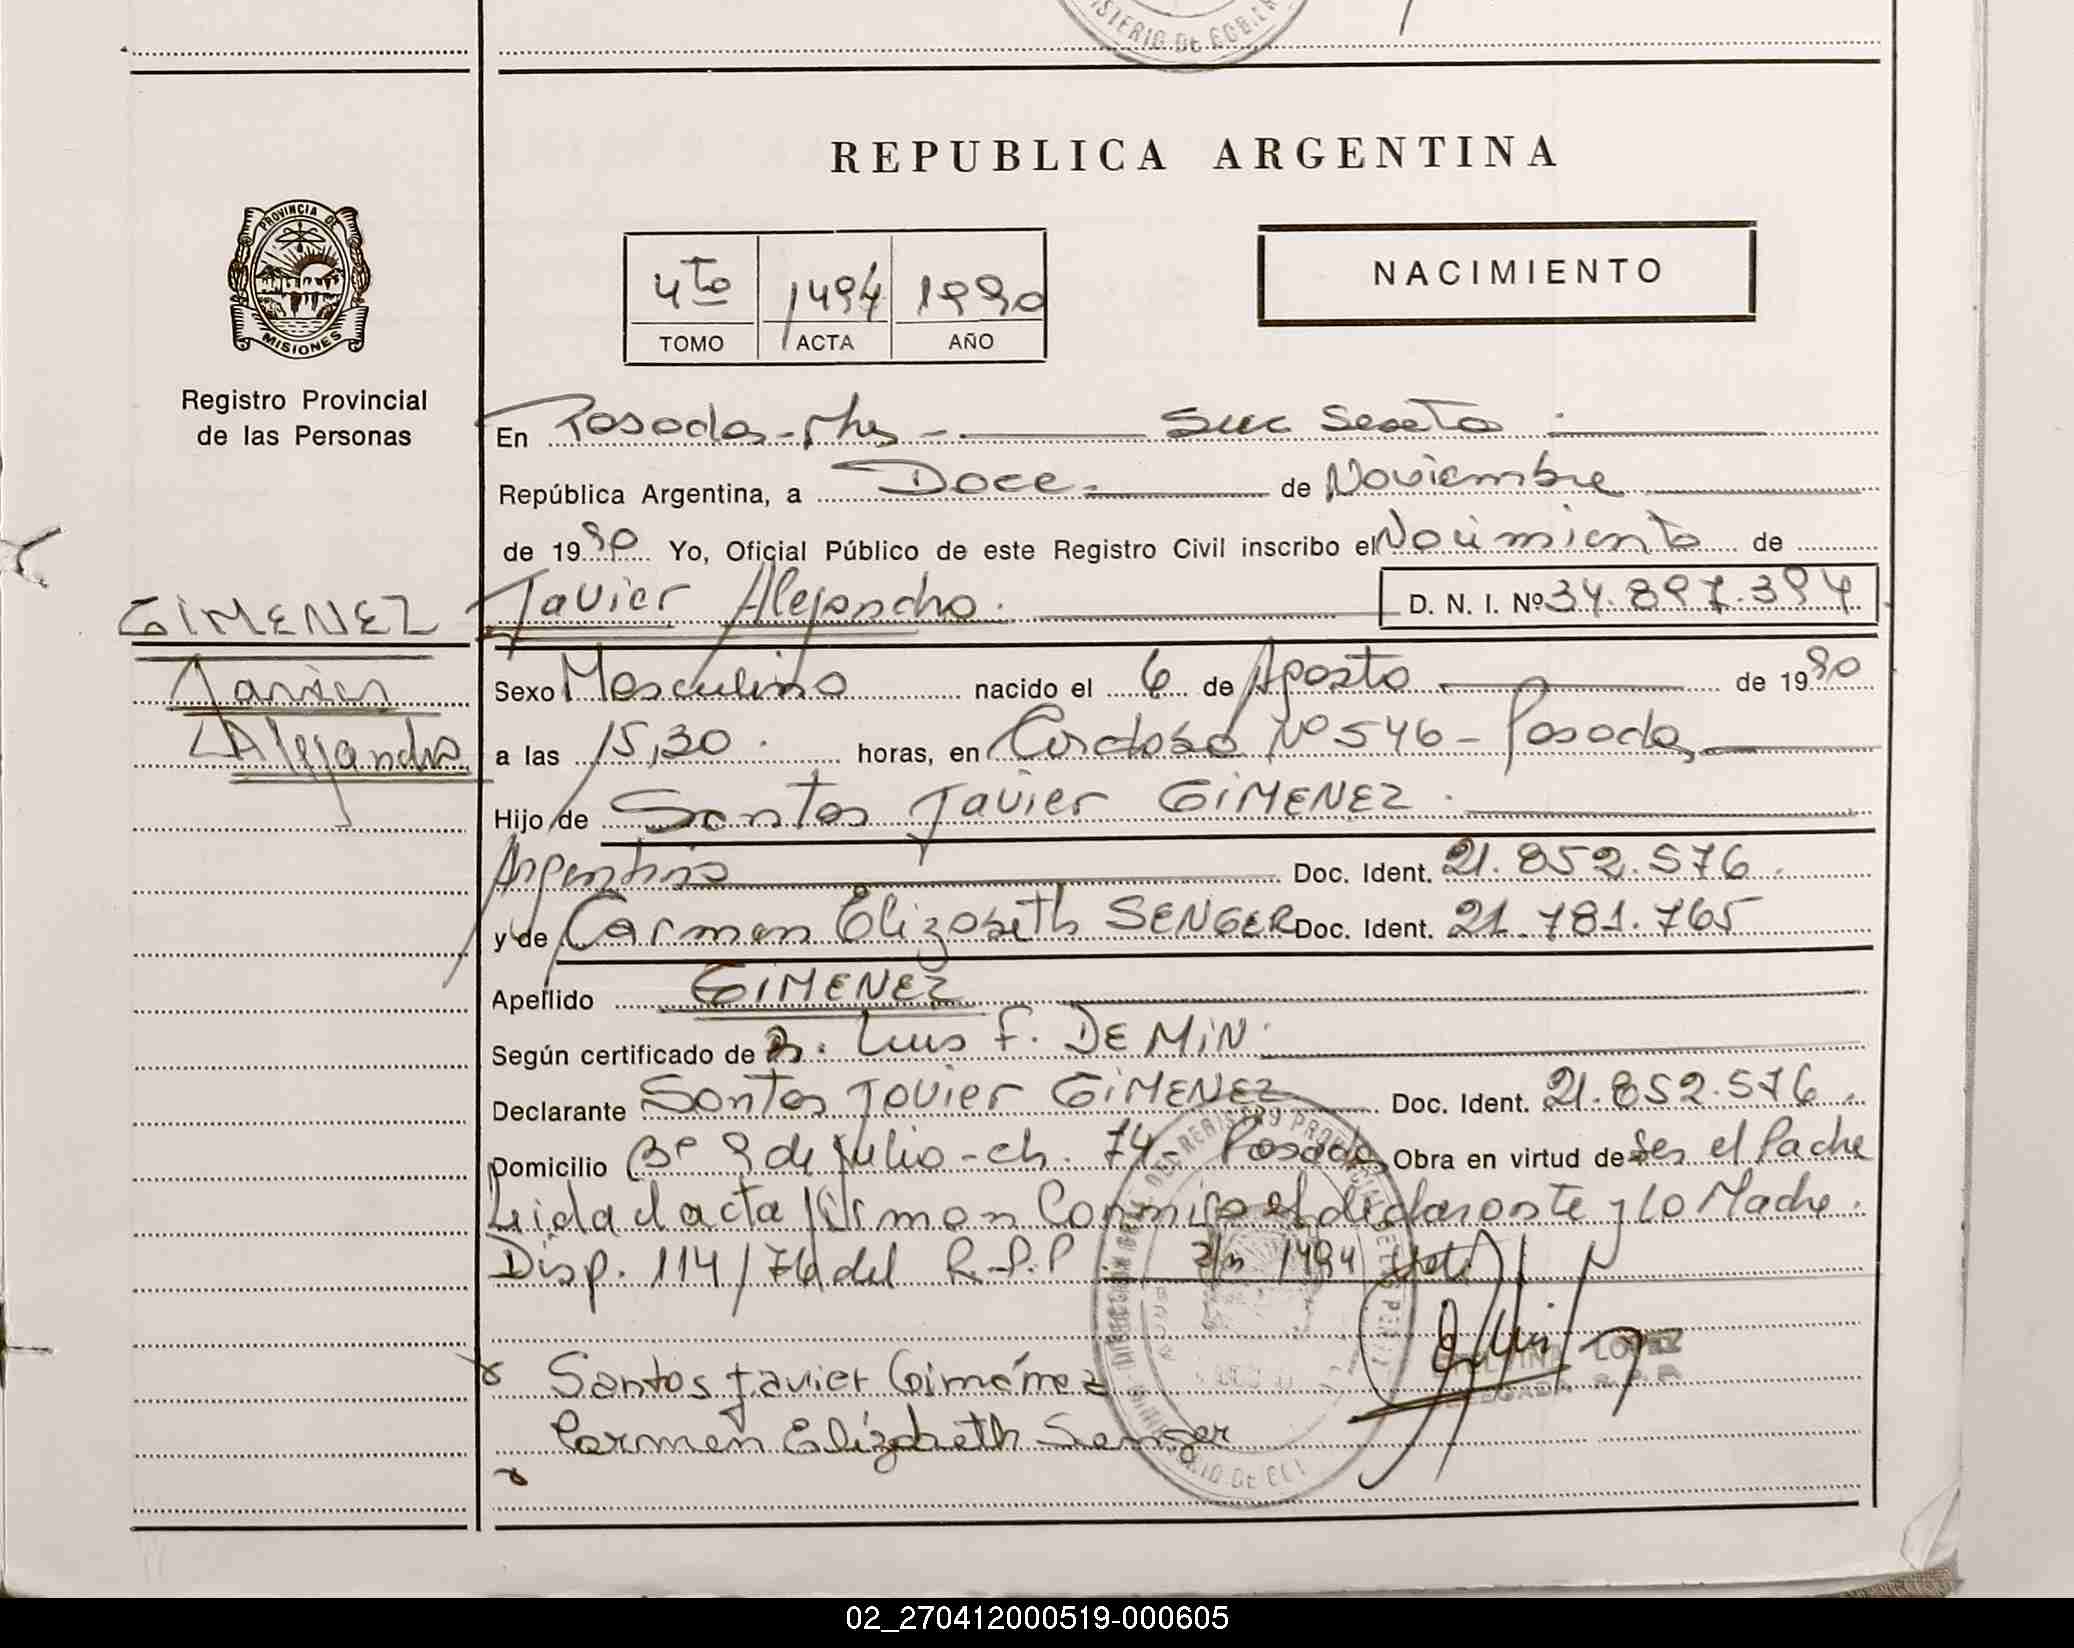 MINISTERIO DE GOBIER
REPUBLICA ARGENTINA
PROVINCIA DE
MISIONES
Registro Provincial
de las Personas
4to 1494 1990
TOMO ACTA AÑO
NACIMIENTO
En Posadas - Mnes - Suc Sexta
República Argentina, a Doce. de Noviembre
de 1990 Yo, Oficial Público de este Registro Civil inscribo el Nacimiento de
GIMENEZ
Javier Alejandro. D. N. I. Nº 34.897.394
Javier
Alejandro
Sexo Masculino nacido el 6 de Agosto de 1990
a las 15,30. horas, en Cordoba Nº 546 - Posadas
Hijo de Santos Javier GIMENEZ.
Argentino Doc. Ident. 21.852.576.
y de Carmen Elizabeth SENGER Doc. Ident. 21.781.765
Apellido GIMENEZ
Según certificado de Dr. Luis F. DE MIN.
Declarante Santos Javier GIMENEZ Doc. Ident. 21.852.576.
Domicilio Bº 9 de Julio - ch. 74 - Posadas Obra en virtud de Ser el Padre
Leida el acta firman Conmigo el declarante y la Madre.
Disp. 114/76 del R.P.P. 1494
Santos Javier Giménez
Carmen Elizabeth Senger
LOPEZ
DELEGADA R.P.P.
02_270412000519-000605